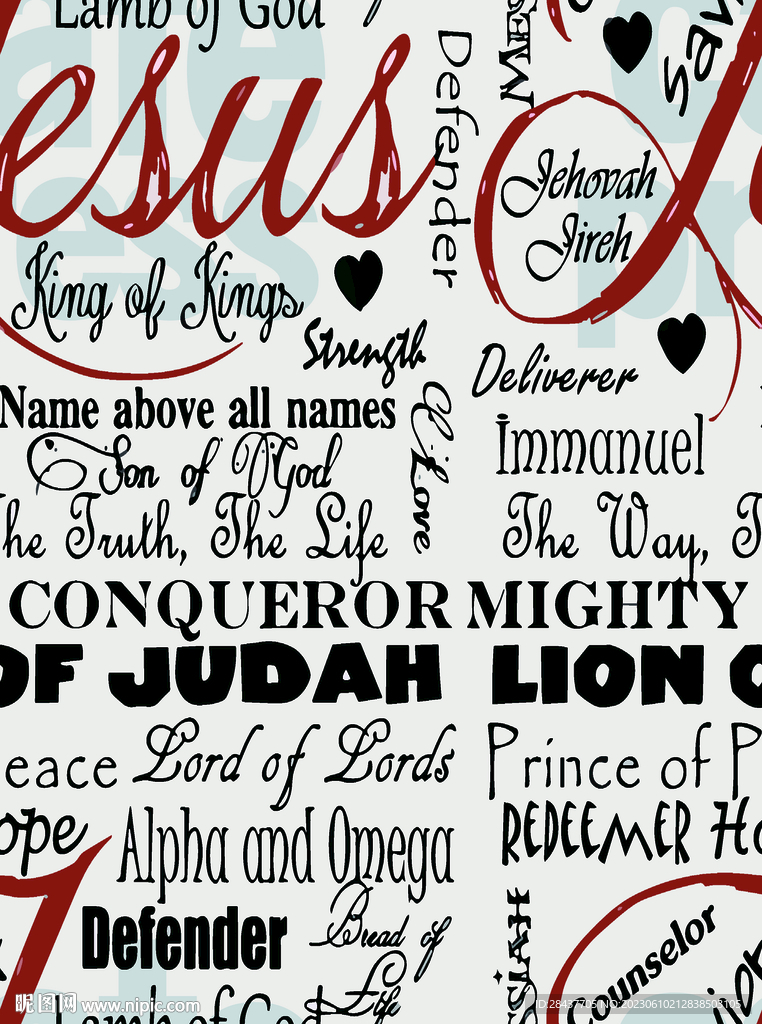 Lamb of God
esus
Defender
Jehovah
Jireh
King of Kings
Strength
Deliverer
Name above all names
Immanuel
Son of God
Love
he Truth, The Life
The Way, T
CONQUEROR MIGHTY
OF JUDAH LION O
eace Lord of Lords
Prince of P
ope
Alpha and Omega
REDEEMER Ho
Defender
Bread of
Life
SIAH
Counselor
Lamb of God
昵图网 www.nipic.com
ID:28437705 NO:20230610212838503105